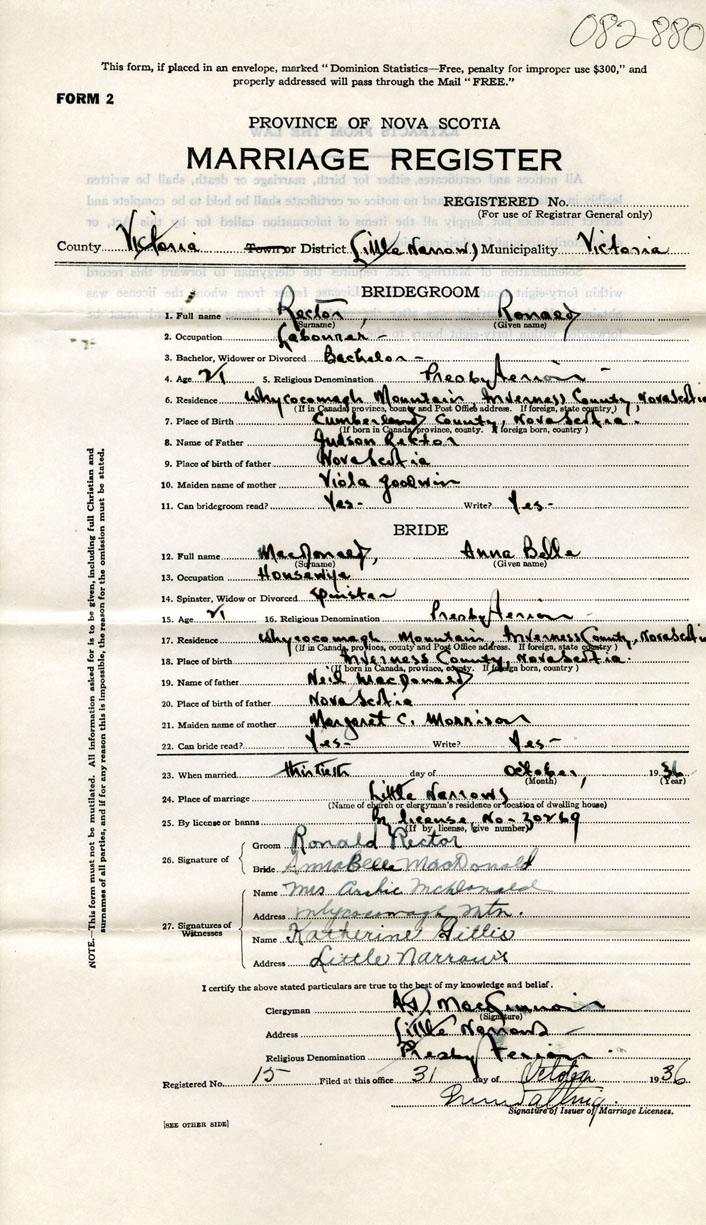 082880
This form, if placed in an envelope, marked "Dominion Statistics—Free, penalty for improper use $300," and
properly addressed will pass through the Mail "FREE."
FORM 2
PROVINCE OF NOVA SCOTIA
MARRIAGE REGISTER
REGISTERED No.
(For use of Registrar General only)
County Victoria Town or District (Little Narrows) Municipality Victoria
BRIDEGROOM
1. Full name Rector, Ronald
(Surname) (Given name)
2. Occupation Labourer -
3. Bachelor, Widower or Divorced Bachelor -
4. Age 21 5. Religious Denomination Presbyterian -
6. Residence Whycocomagh Mountain, Inverness County, Nova Scotia
(If in Canada, province, county and Post Office address. If foreign, state country)
7. Place of Birth Cumberland County, Nova Scotia.
(If born in Canada, province, county. If foreign born, country)
8. Name of Father Judson Rector
9. Place of birth of father Nova Scotia
10. Maiden name of mother Viola Goodwin
11. Can bridegroom read? Yes- Write? Yes-
BRIDE
12. Full name MacDonald, Anna Belle
(Surname) (Given name)
13. Occupation Housewife
14. Spinster, Widow or Divorced Spinster
15. Age 21 16. Religious Denomination Presbyterian -
17. Residence Whycocomagh Mountain, Inverness County, Nova Scotia
(If in Canada, province, county and Post Office address. If foreign, state country)
18. Place of birth Inverness County, Nova Scotia.
(If born in Canada, province, county. If foreign born, country)
19. Name of father Neil MacDonald
20. Place of birth of father Nova Scotia
21. Maiden name of mother Margaret C. Morrison
22. Can bride read? Yes- Write? Yes-
23. When married thirtieth day of October, 1936
(Month) (Year)
24. Place of marriage Little Narrows
(Name of church or clergyman's residence or location of dwelling house)
25. By license or banns By license, No- 30269
(If by license, give number)
26. Signature of
Groom Ronald Rector
Bride AnnaBelle MacDonald
27. Signatures of Witnesses
Name Mrs Archie McDonald
Address Whycocomagh Mtn.
Name Katherine Gillis
Address Little Narrows
I certify the above stated particulars are true to the best of my knowledge and belief.
Clergyman A.D. MacKinnon
(Signature)
Address Little Narrows -
Religious Denomination Presbyterian.
Registered No. 15 Filed at this office 31 day of October 1936
Signature of Issuer of Marriage Licenses.
[SEE OTHER SIDE]
NOTE.—This form must not be mutilated. All information asked for is to be given, including full Christian and
surnames of all parties, and if for any reason this is impossible, the reason for the omission must be stated.